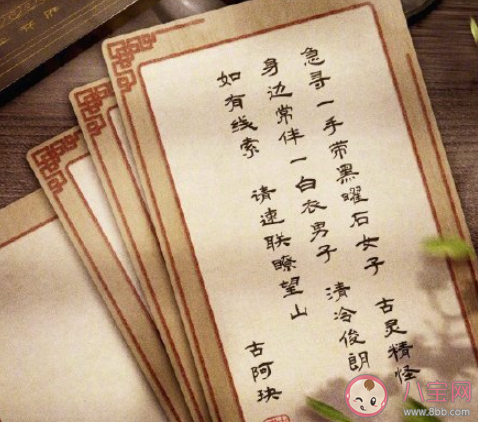 急寻一手带黑曜石女子 古灵精怪
身边常伴一白衣男子 清冷俊朗
如有线索 请速联瞭望山
古阿玦
八宝网
www.8bb.com